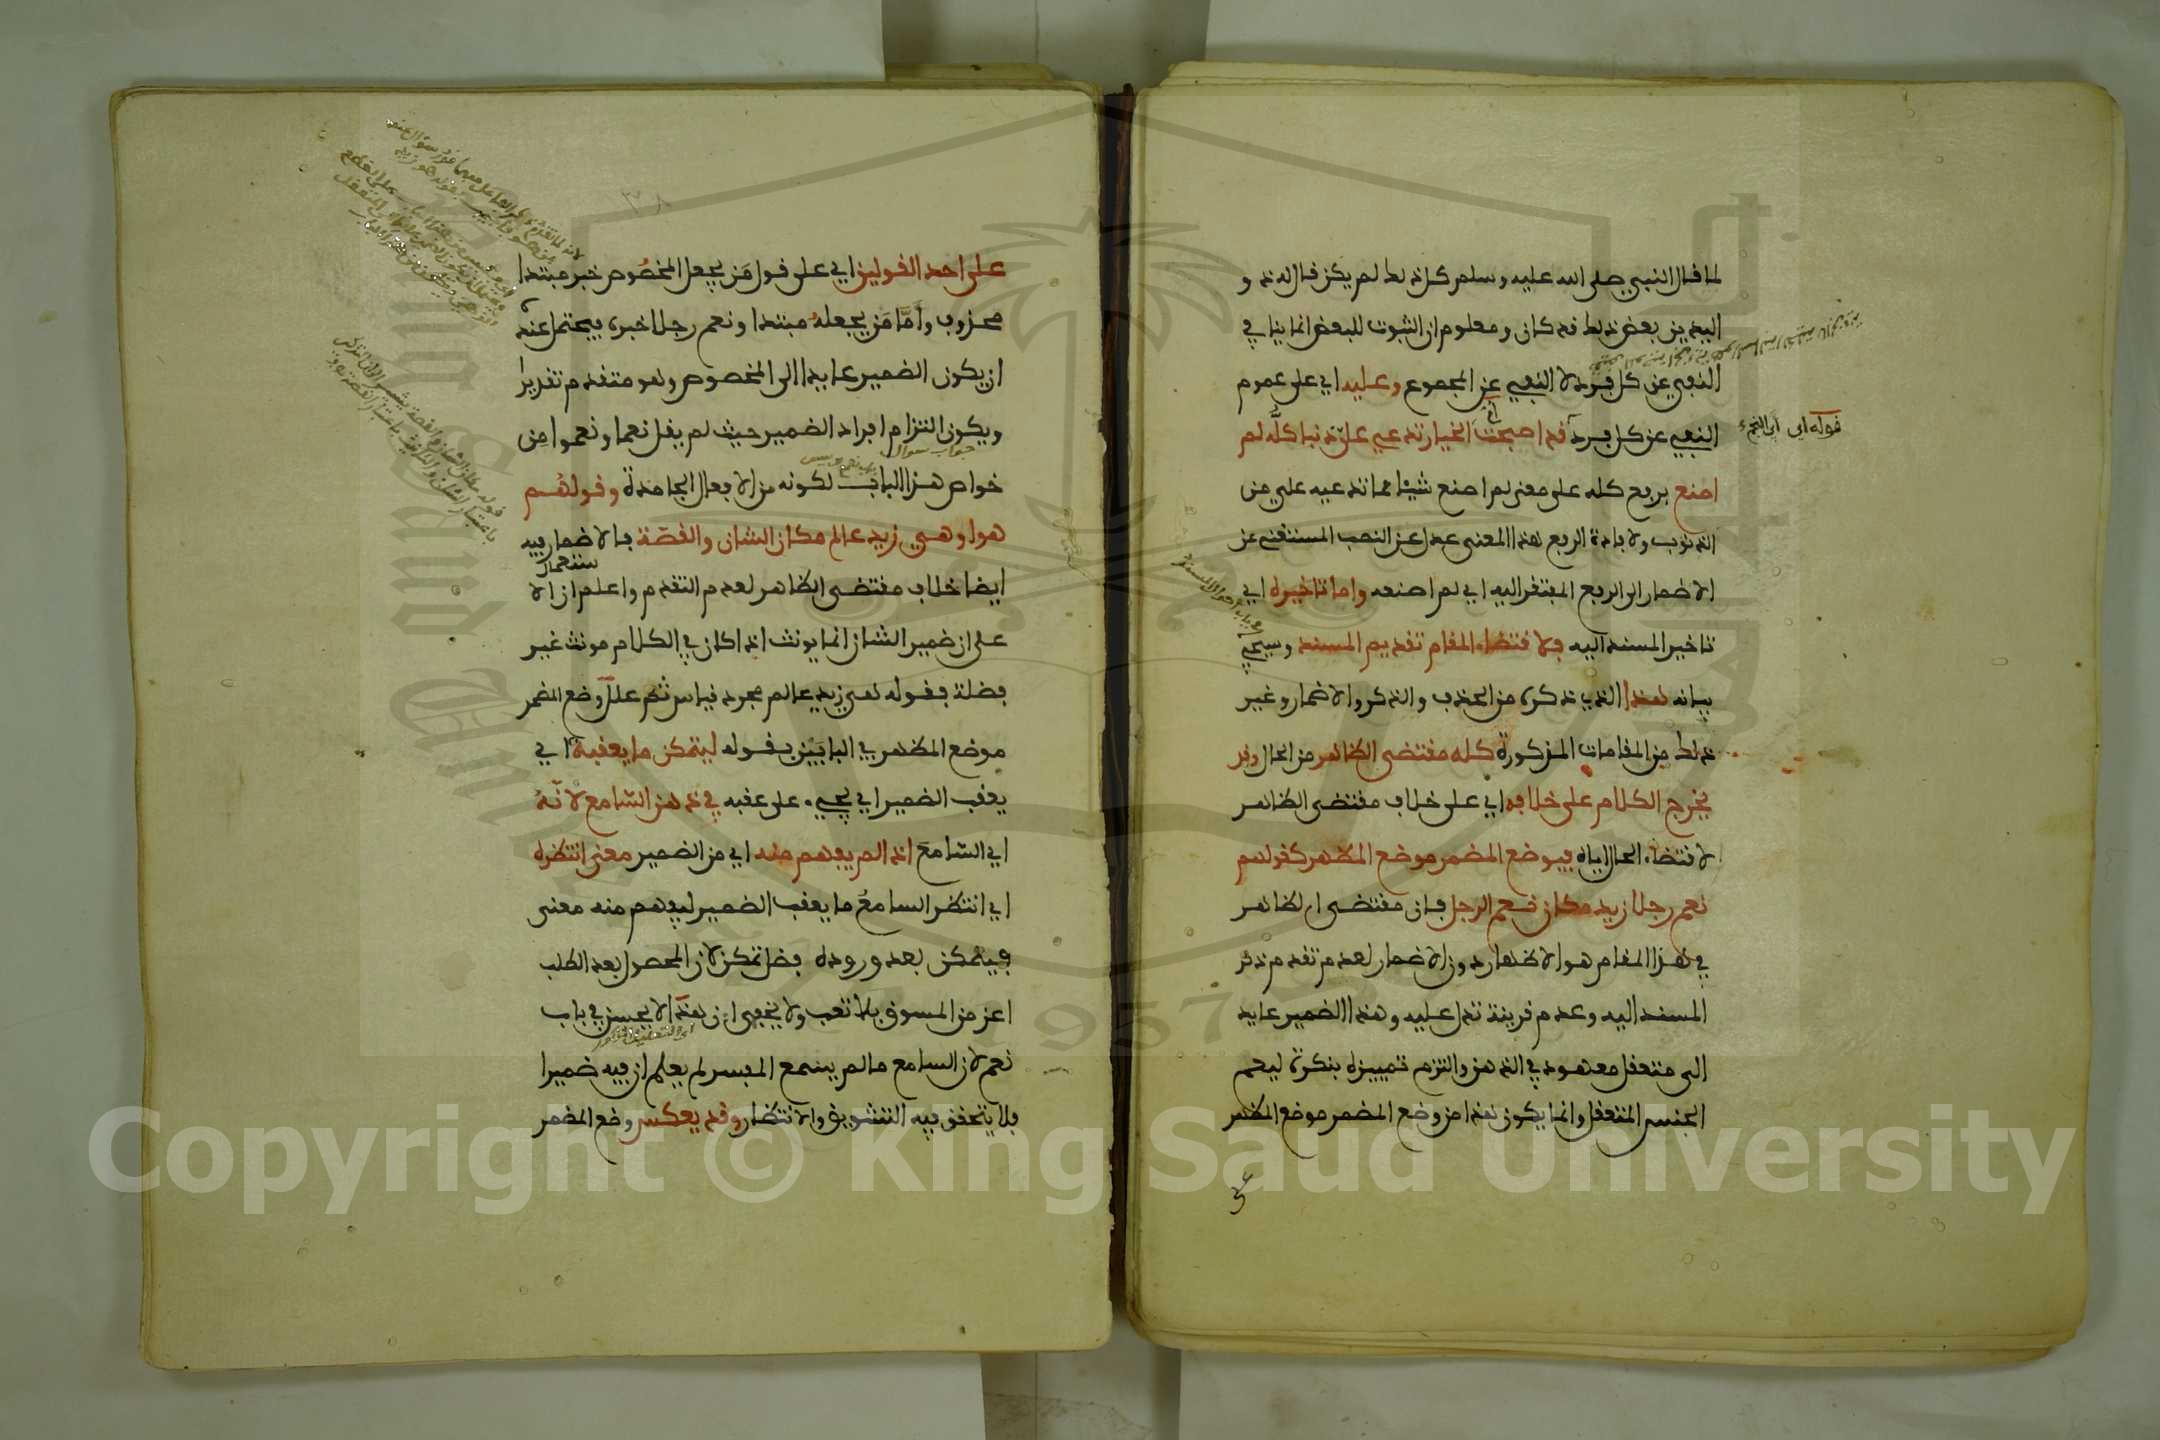 لما قال النبي صلى الله عليه وسلم كل ذلك لم يكن قال له ذو
اليدين بعض ذلك قد كان ومعلوم ان الثبوت للبعض انما ينافي
النفي عن كل فرد لا النفي عن المجموع وعليه اي على عموم
النفي عن كل فرد قد اصبحت ام الخيار تدعي علي ذنبا كله لم
قوله اي ابي النجم
اصنع برفع كله على معنى لم اصنع شيئا مما تدعيه علي من
الذنوب ولافادة الرفع هذا المعنى عدل عن النصب المستغنى عن
الاضمار الى الرفع المفتقر اليه اي لم اصنعه واما تاخيره اي
تاخير المسند اليه فلاقتضاء المقام تقديم المسند وسيجيء
بيانه هذا الذي ذكره من الحذف والذكر والاضمار وغير
ذلك من المقامات المذكورة كله مقتضى الظاهر من الحال وقد
يخرج الكلام على خلافه اي على خلاف مقتضى الظاهر
لاقتضاء الحال اياه فيوضع المضمر موضع المظهر كقولهم
نعم رجلا زيد مكان نعم الرجل فان مقتضى الظاهر
في هذا المقام هو الاظهار دون الاضمار لعدم تقدم ذكر
المسند اليه وعدم قرينة تدل عليه وهذا الضمير عايد
الى متعقل معهود في الذهن والتزم تمييزه بنكرة ليعم
الجنس المتعقل وانما يكون هذا من وضع المضمر موضع المظهر
على
على احد القولين اي على قول من يجعل المخصوص خبر مبتدا
محذوف وأمّا من يجعله مبتدا ونعم رجلا خبره فيحتمل عنده
ان يكون الضمير عايدا الى المخصوص وهو متقدم تقديرا
ويكون التزام افراد الضمير حيث لم يقل نعما ونعموا من
جواب سوال
خواص هذا الباب لكونه من الافعال الجامدة وقولهم
هو او هي زيد عالم مكان الشان والقصّة فالاضمار فيه
ايضا خلاف مقتضى الظاهر لعدم التقدم واعلم ان الاستعمال
على ان ضمير الشان انما يونث اذا كان في الكلام مونث غير
فضلة فقوله هي زيد عالم مجرد قياس ثم علل وضع المضمر
موضع المظهر في البابين بقوله ليتمكن ما يعقبه اي
يعقب الضمير اي يجيء على عقبه في ذهن السامع لانّه
اي السّامع اذا لم يفهم منه اي من الضمير معنى انتظره
اي انتظر السامع ما يعقب الضمير ليفهم منه معنى
فيتمكن بعد وروده فضل تمكن لان المحصول بعد الطلب
اعز من المسوق بلا تعب ولا يخفى ان هذا لا يحسن في باب
نعم لان السامع ما لم يسمع المفسر لم يعلم ان فيه ضميرا
فلا يتحقق فيه التشويق والانتظار وقد يعكس وضع المضمر
Copyright © King Saud University
1957